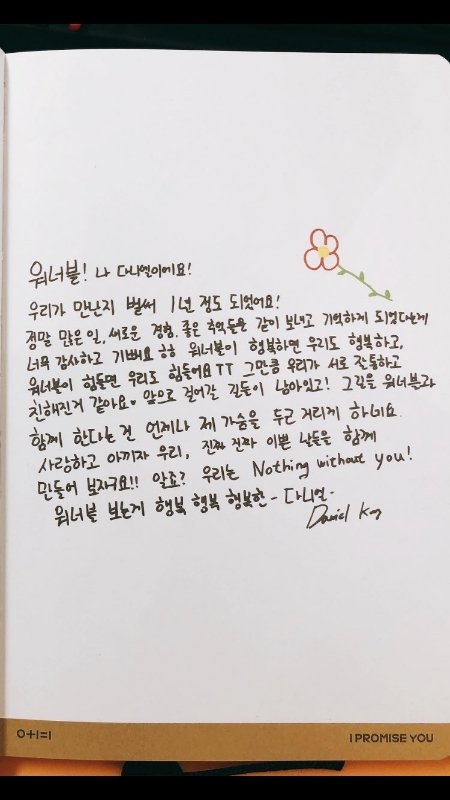 워너블! 나 다니엘이에요!
우리가 만난지 벌써 1년 정도 되었어요!
정말 많은 일, 새로운 경험, 좋은 추억들을 같이 보내고 기억하게 되었다는게
너무 감사하고 기뻐요 ㅎㅎ 워너블이 행복하면 우리도 행복하고,
워너블이 힘들면 우리도 힘들어요 TT 그만큼 우리가 서로 잘 통하고
친해진거 같아요♥ 앞으로 걸어갈 길들이 남아있고! 그 길을 워너블과
함께 한다는 건 언제나 제 가슴을 두근거리게 하네요.
사랑하고 아끼자 우리, 진짜 진짜 이쁜 날들을 함께
만들어 보자구요!! 알죠? 우리는 Nothing without you!
워너블 보는게 행복 행복 행복한 - 다니엘 -
Daniel K
0+1=1 I PROMISE YOU